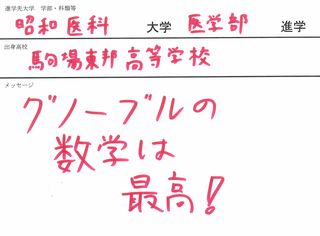 進学先大学 学部・科類等
昭和医科 大学 医学部 進学
出身高校
駒場東邦高等学校
メッセージ
グノーブルの
数学は
最高!